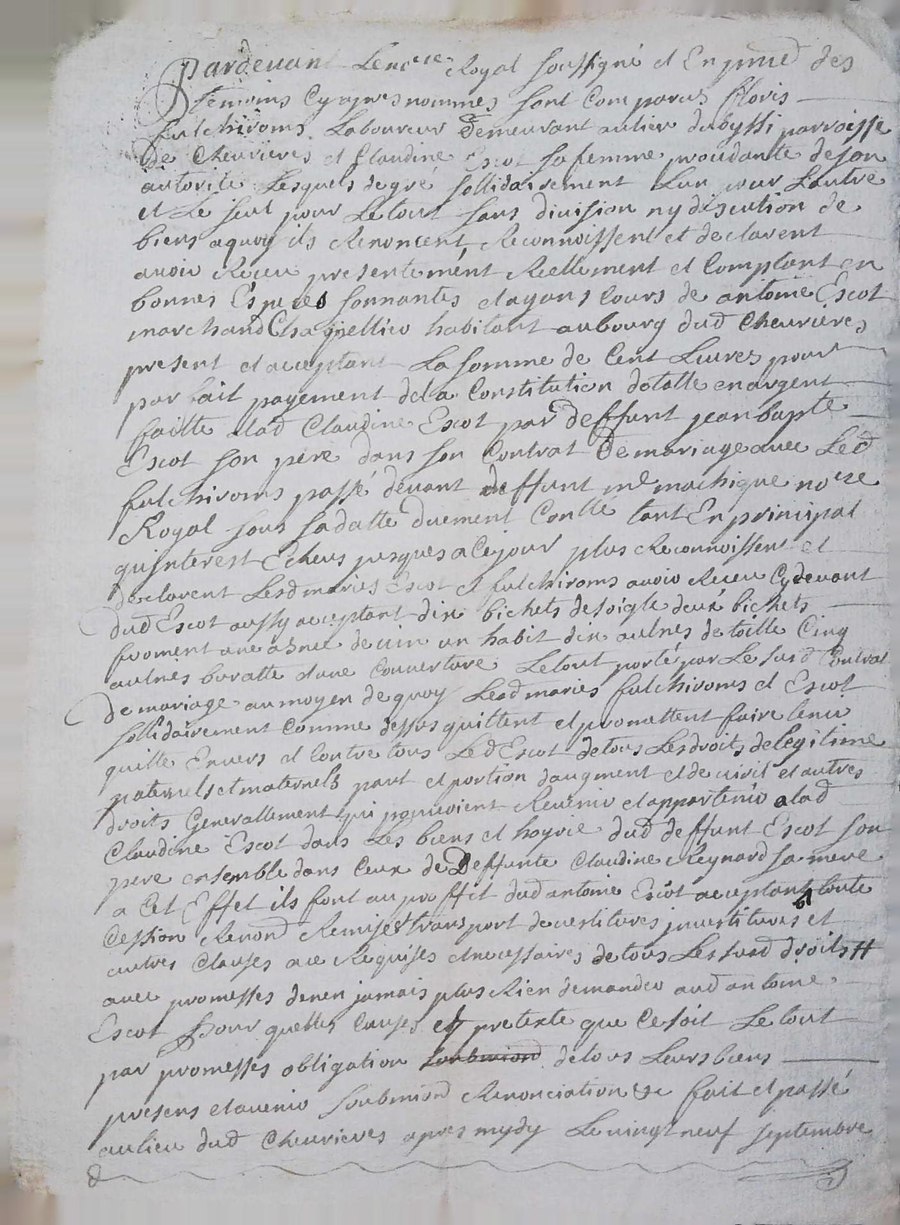 Pardevant Le no.re Royal soussigné et En pnce des
temoins Cyapres nommes sont Comparus floris
fulchirons Laboureur demeurant au lieu du byssi parroisse
de Cheurieres et Claudine Escot sa femme procedante de son
autorite Lesquels de gré sollidairement Lun pour Lautre
et Le seul pour Le tout sans division ny discution de
biens a quoy ils Renoncent, Reconnoissent et declarent
avoir Receu presentement Reellement et Comptant en
bonnes Espèces sonnantes et ayans Cours de antoine Escot
marchand Chapellier habitant au bourg dud Cheurieres
present et acceptant La somme de Cent Livres pour
parfait payement de La Constitution dotalle en argent
faitte a lad Claudine Escot par deffunt jean bapte
Escot son père dans son Contrat de mariage avec Led
fulchirons passé devant deffunt me machique no.re
Royal sous sa datte duement Conlle tant En principal
qu'interest Echeus jusques a Ce jour plus Reconnoissent et
declarent Lesd maries Escot et fulchirons avoir Receu Cydevant
dud Escot aussy acceptant dix bichets de soigle deux bichets
froment une asnee de vin un habit dix aulnes de toille Cinq
aulnes buratte et une Couverture Le tout porté par Le susd Contrat
de mariage au moyen de quoy Lesd maries fulchirons et Escot
sollidairement Comme dessus quittent et promettent faire tenir
quitte Envers et Contre tous Led Escot de tous Les droits de Legitime
paternels et maternels part et portion d'augment et de civil et autres
droits Generallement qui pourroient Revenir et appartenir a lad
Claudine Escot dans Les biens et hoyrie dud deffunt Escot son
pere ensemble dans Ceux de Deffunte Claudine Reynard sa mere
a Cet Effet ils font au proffit dud antoine Escot acceptant toute
Cession Renond Remise et transport devestitures investitures et
autres Clauses a ce Requises et necessaires de tous Les susd droits
avec promesses den en jamais plus Rien demander aud antoine
Escot pour quelles Causes et pretexte que Ce soit Le tout
par promesses obligation soubmiond de tous Leurs biens
presens et avenir soubmiond Renonciation &c fait et passé
au lieu dud Cheurieres apres mydy Le vingt neuf septembre